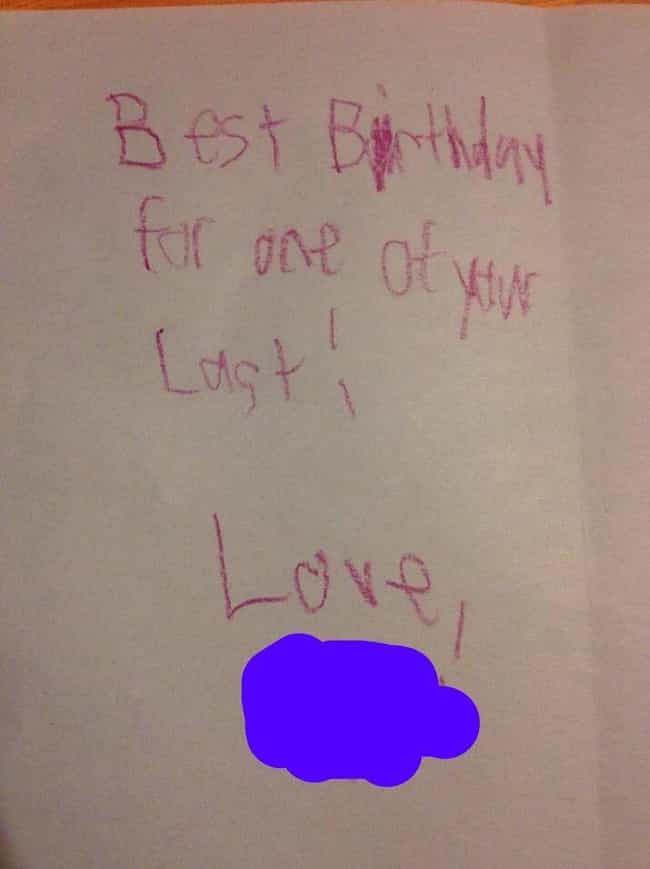 Best Birthday
for one of your
Last!
Love,